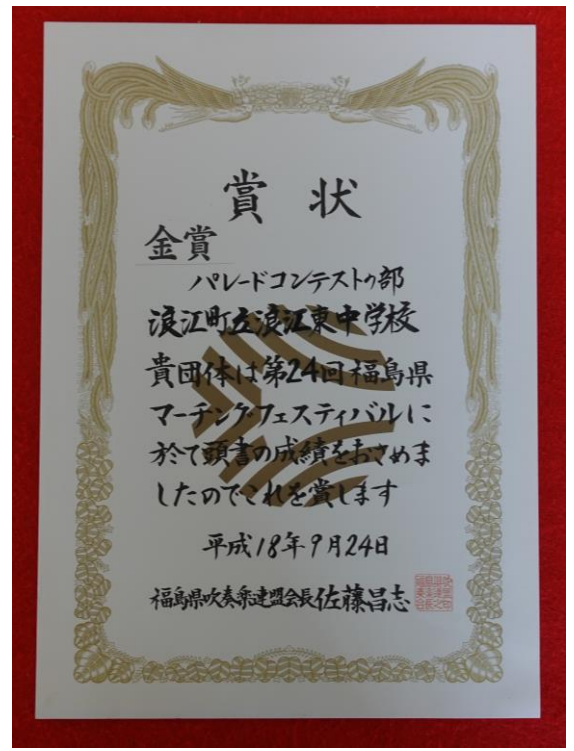 賞状
金賞
パレードコンテストの部
浪江町立浪江東中学校
貴団体は第24回福島県
マーチングフェスティバルに
於て頭書の成績をおさめま
したのでこれを賞します
平成18年9月24日
福島県吹奏楽連盟会長佐藤昌志